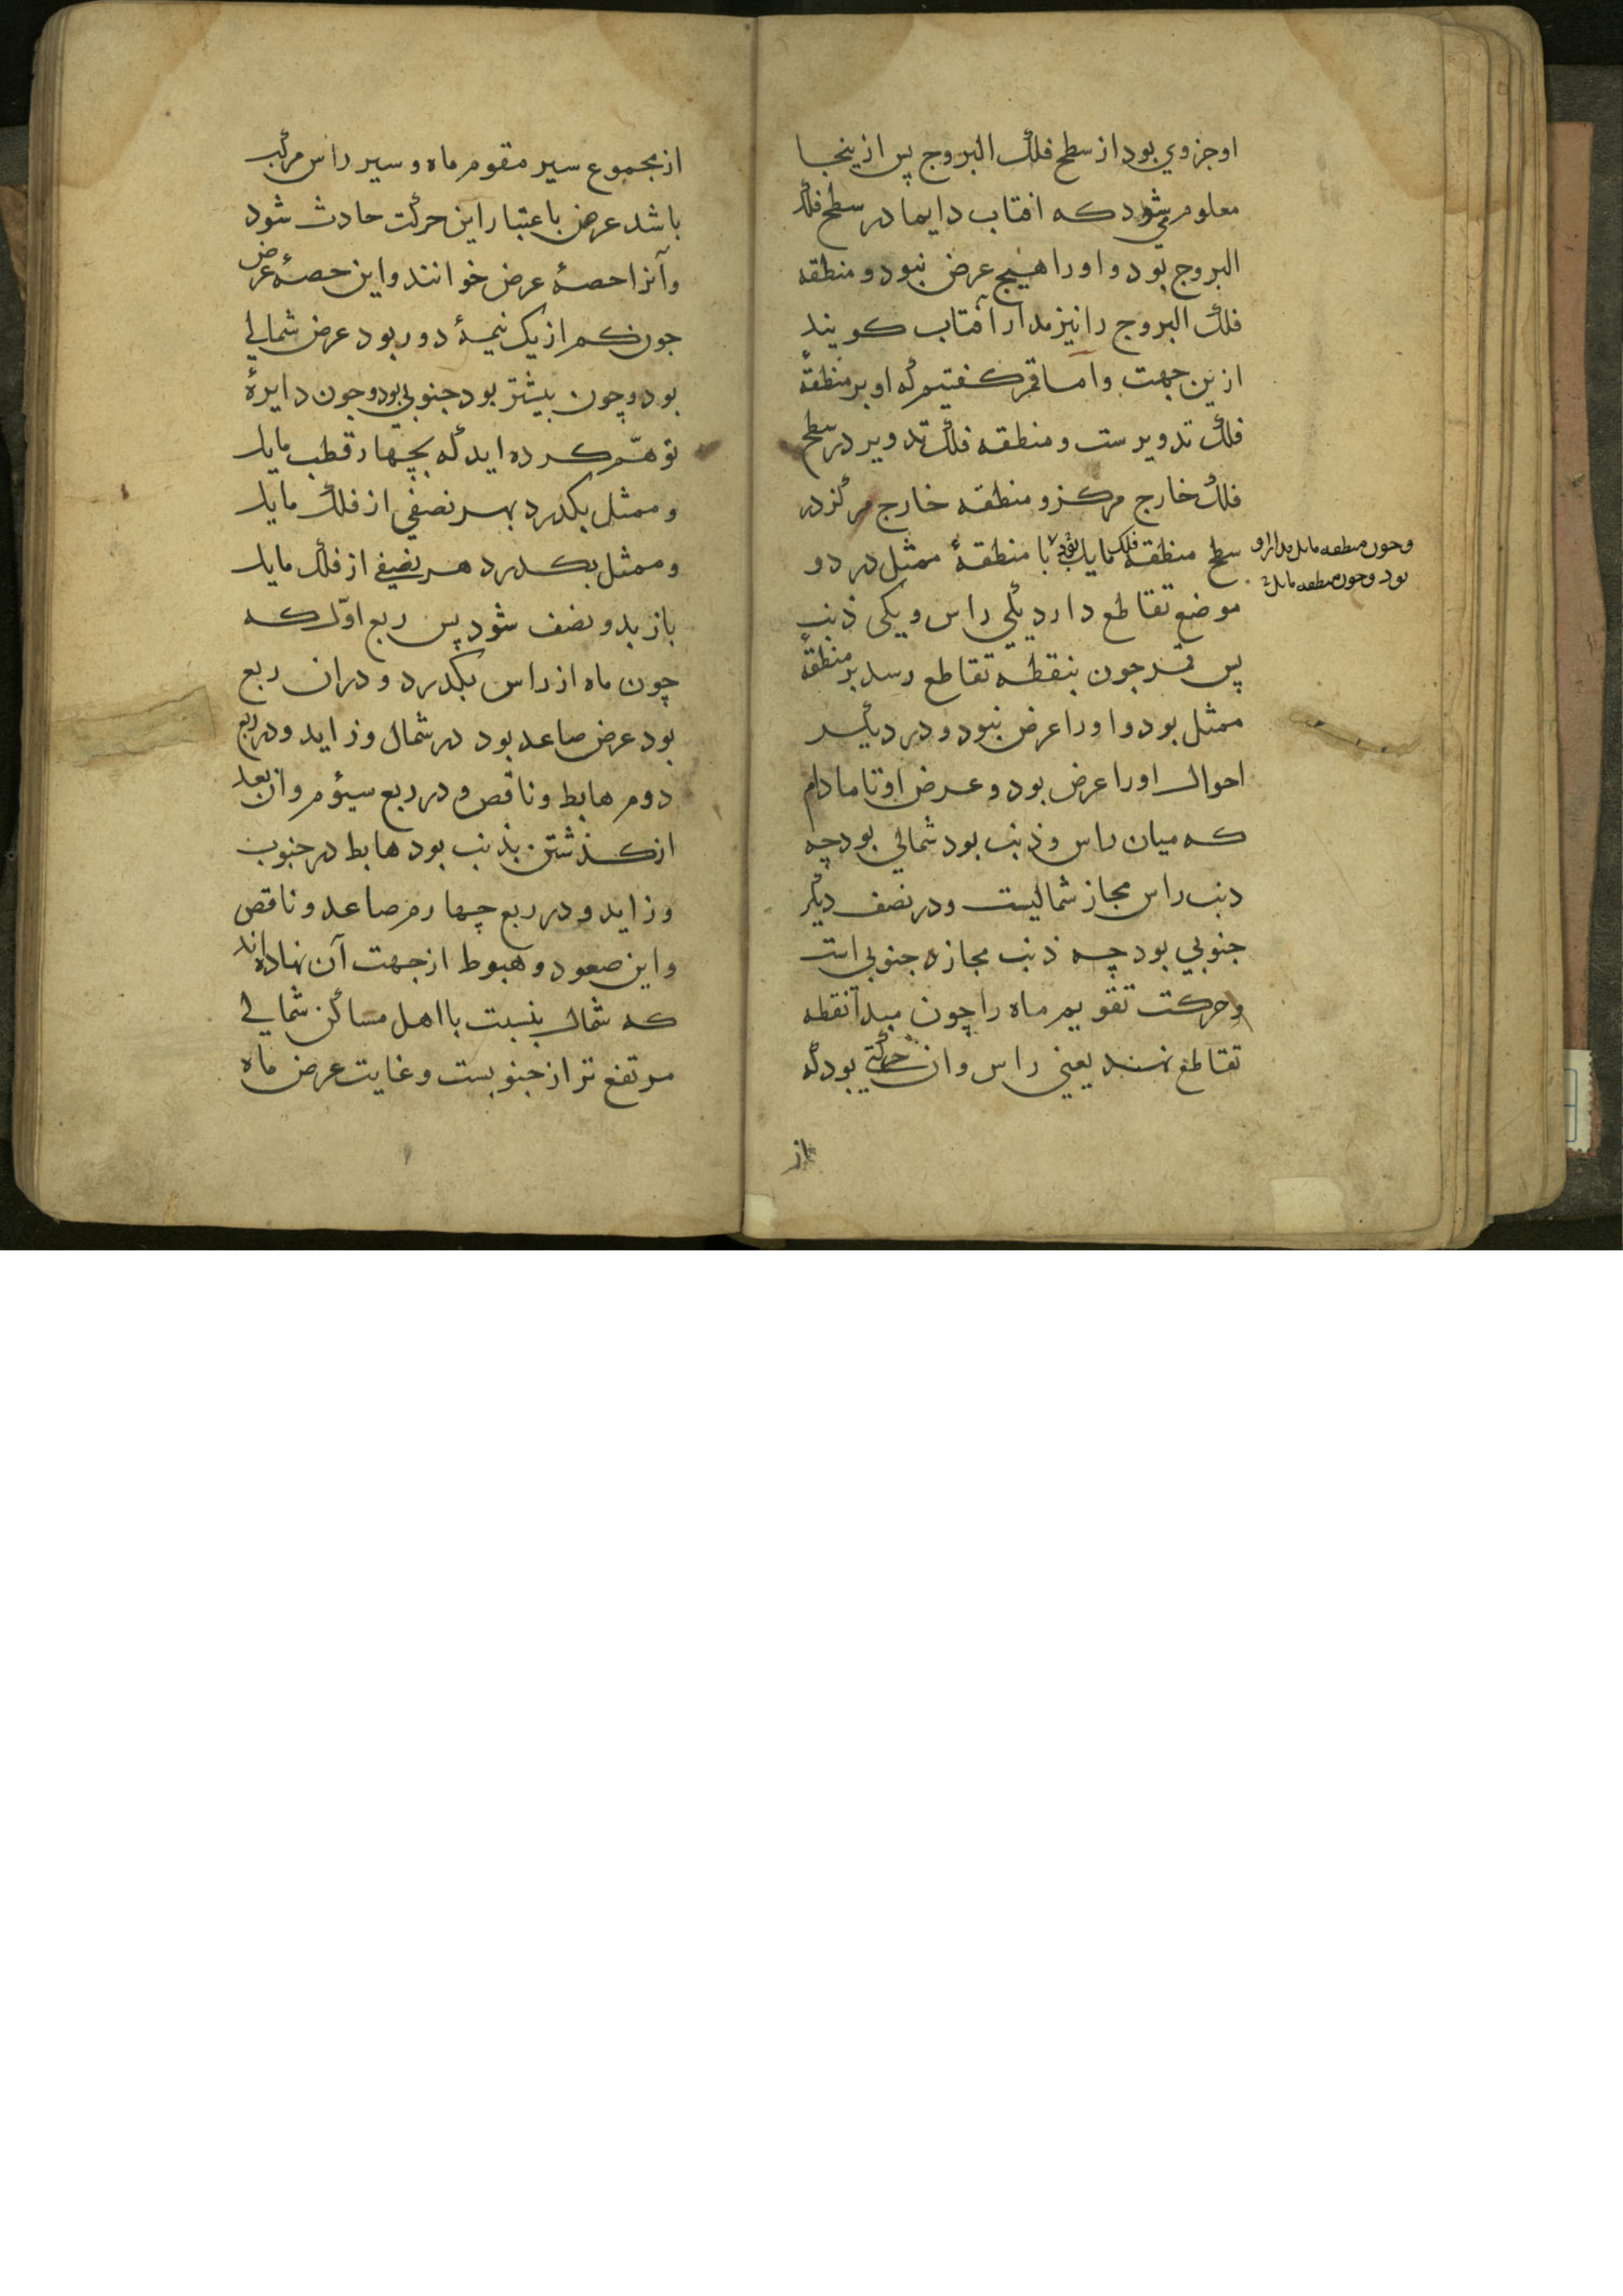 او جزوي بود از سطح فلك البروج پس ازينجا
معلوم ميشود كه افتاب دايما در سطح فلك
البروج بود و او را هيچ عرض نبود و منطقه
فلك البروج را نيز مدار آفتاب كويند
ازين جهت و اما قمر كفتيم كه او بر منطقهٔ
فلك تدويرست و منطقه فلك تدوير در سطح
فلك خارج مركز و منطقه خارج مركز در
سطح منطقه فلك مايل با منطقهٔ ممثل در دو
وچون منطقه مايل مدار او
بود وچون منطقه مايل
موضع تقاطع دارد يكي راس و يكى ذنب
پس قمر چون بنقطه تقاطع رسد بر منطقهٔ
ممثل بود و او را عرض نبود و در ديكر
احوال او را عرض بود و عرض او تا مادام
كه ميان راس و ذنب بود شمالي بود چه
ذنب راس مجاز شماليست و در نصف ديكر
جنوبي بود چه ذنب مجازه جنوبي است
و حركت تقويم ماه را چون مبدا نقطه
تقاطع نهند يعني راس و ان حركتي بود كه
از
از مجموع سير مقوم ماه و سير راس مركب
باشد عرض باعتبار اين حركت حادث شود
و آنرا حصهٔ عرض خوانند و اين حصهٔ عرض
چون كم از يك نيمهٔ دور بود عرض شمالي
بود و چون بيشتر بود جنوبي بود و چون دايرهٔ
توهّم كرده ايد كه بچهار قطب مايل
و ممثل بكذرد بهر نصفي از فلك مايل
و ممثل بكذرد هر نصفي از فلك مايل
باز بدو نصف شود پس ربع اوّل كه
چون ماه از راس بكذرد و دران ربع
بود عرض صاعد بود در شمال و زايد و در ربع
دوم هابط و ناقص و در ربع سيؤم و ان بعد
از كذشتن بذنب بود هابط در جنوب
و زايد و در ربع چهارم صاعد و ناقص
و اين صعود و هبوط از جهت آن نهاده اند
كه شمال بنسبت با اهل مساكن شمالي
مرتفع تر از جنوبست و غايت عرض ماه